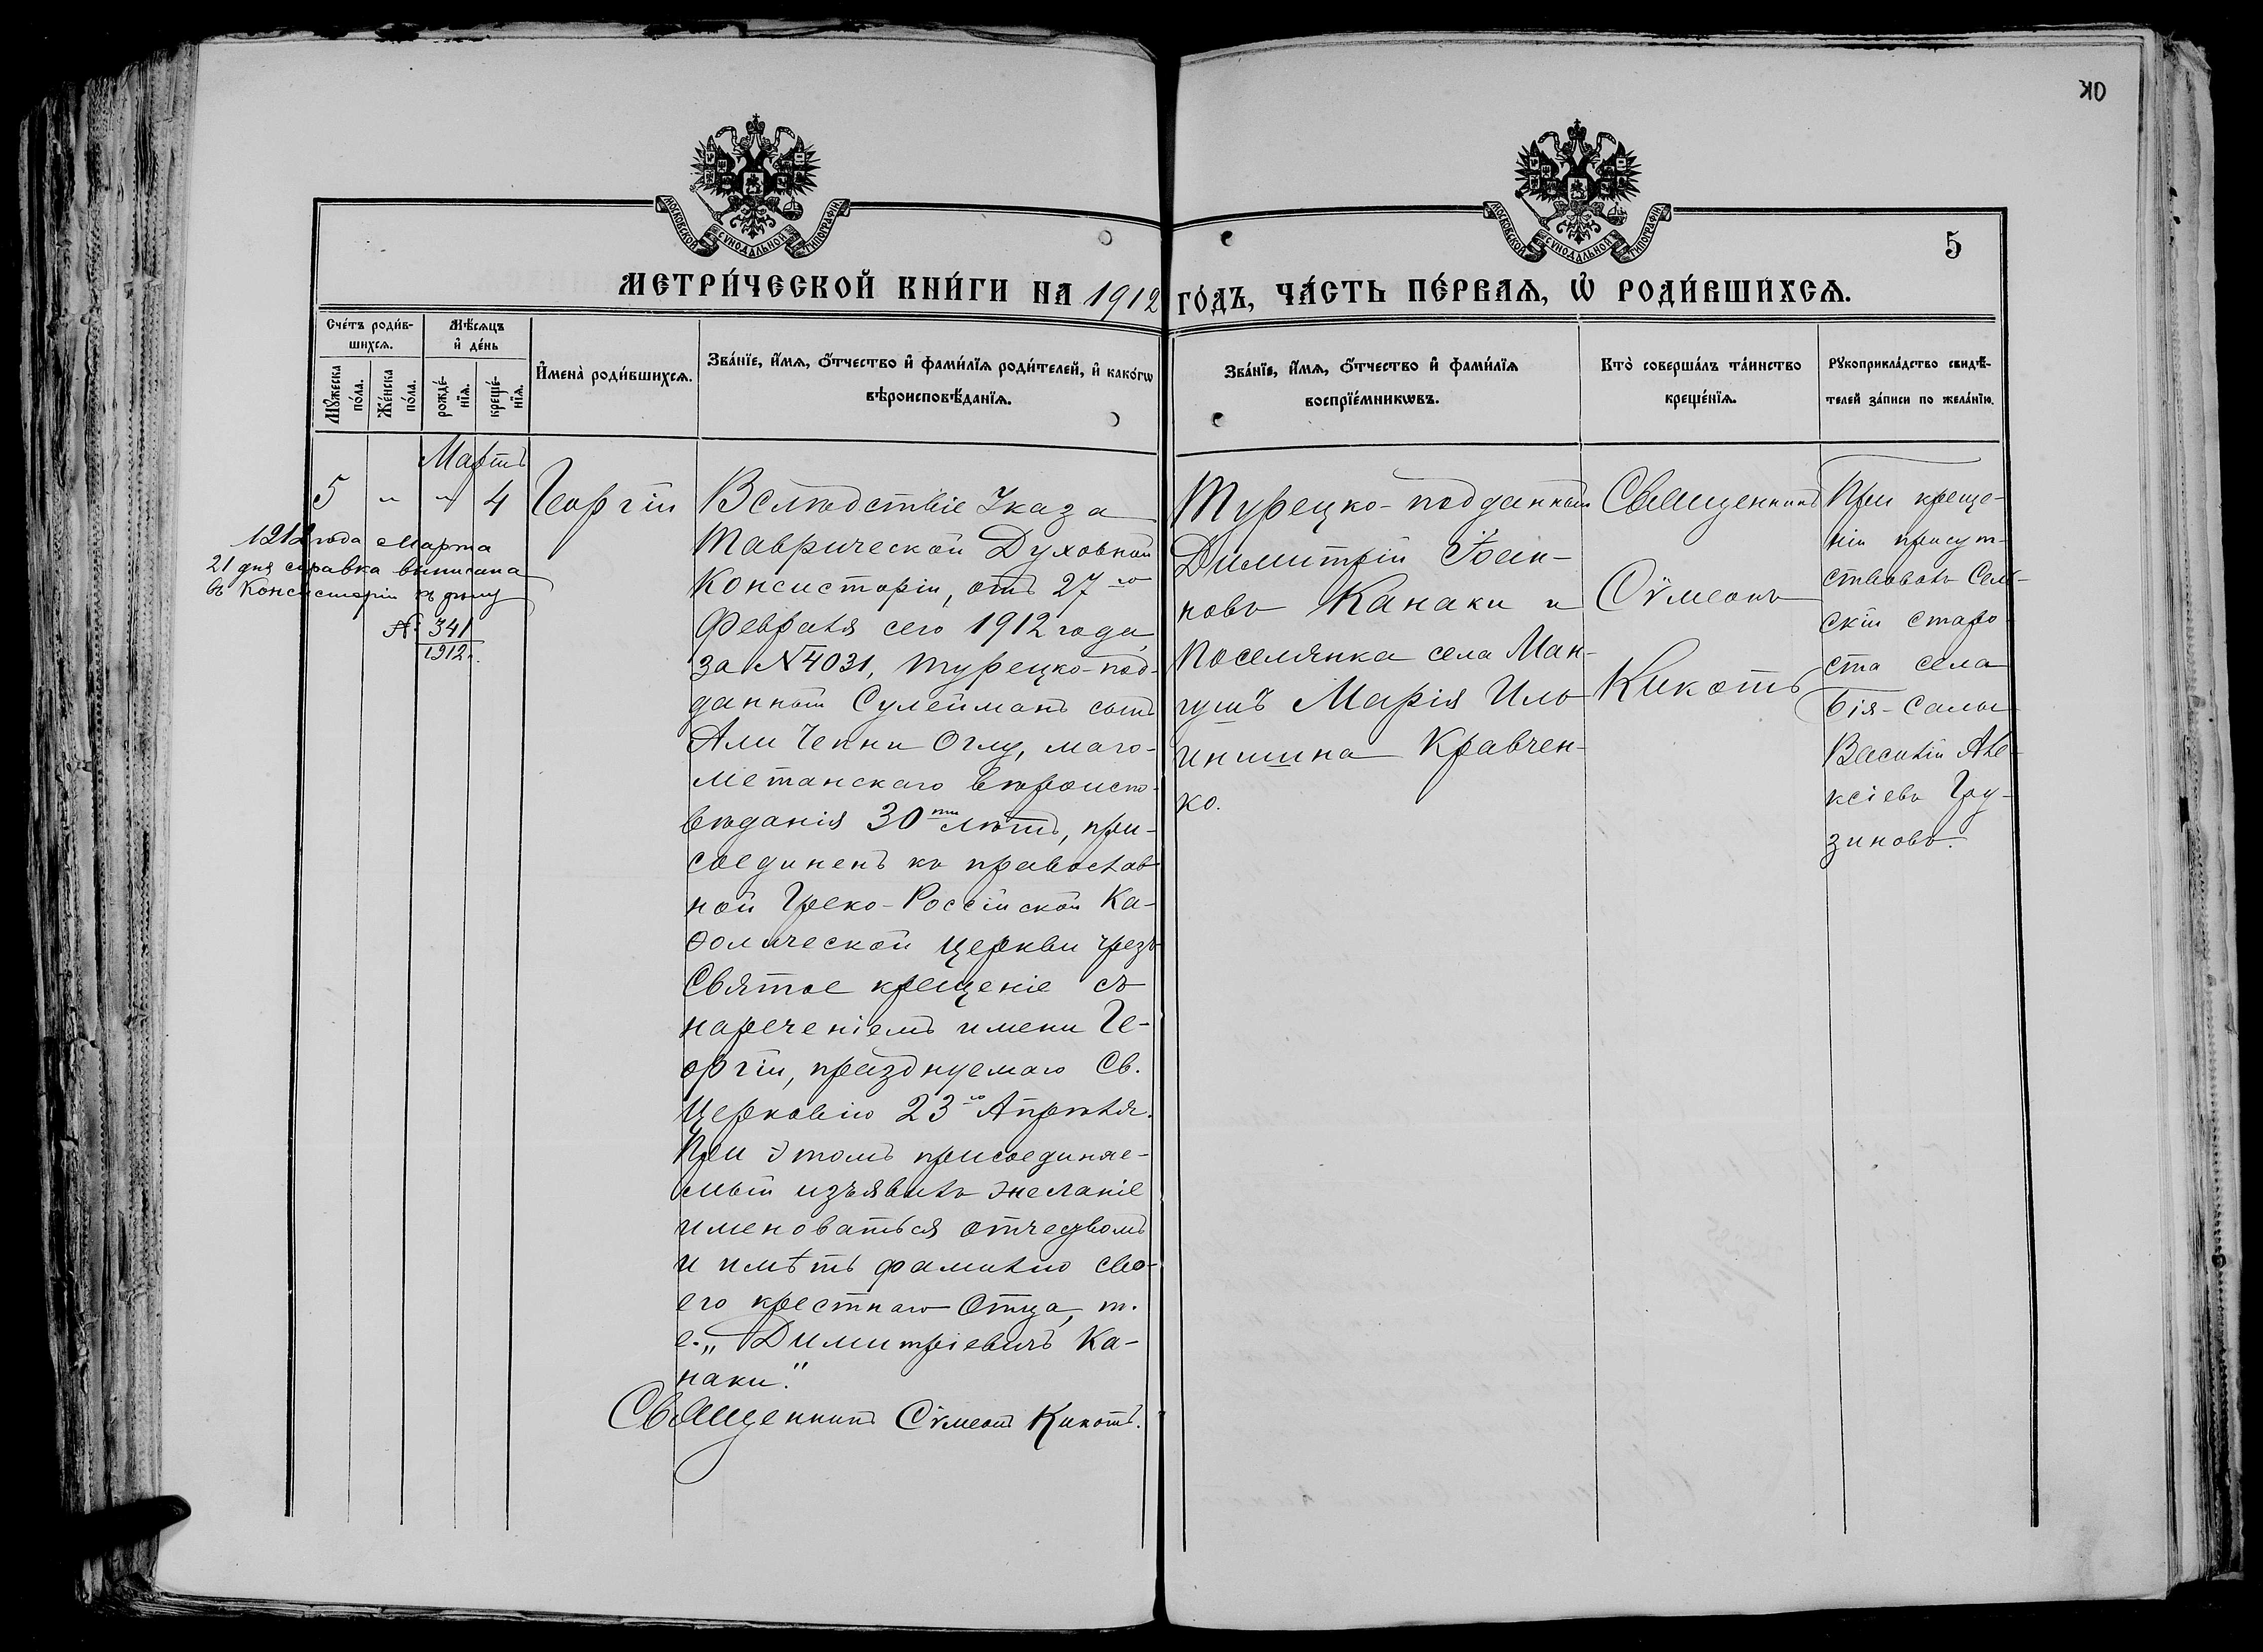 ЖО
МОСКОВСКОЙ СУНОДАЛЬНОЙ ТИПОГРАФІИ
МОСКОВСКОЙ СУНОДАЛЬНОЙ ТИПОГРАФІИ
5
МЕТРИ́ЧЕСКОЙ КНИ́ГИ НА 1912 ГО́ДЪ, ЧА́СТЬ ПЕ́РВАѦ, Ѡ҆ РОДИ́ВШИХСѦ.
Сче́тъ роди́в-
шихсѧ.
Мꙋ́жеска
по́ла.
Же́нска
по́ла.
Мѣ́сѧцъ
и҆ де́нь
рожде́-
нїѧ.
креще́-
нїѧ.
И҆мена̀ роди́вшихсѧ.
Зва́нїе, и҆́мѧ, ѻ҆́тчество и҆ фами́лїѧ роди́телей, и҆ како́гѡ
вѣроисповѣ́данїѧ.
Зва́нїе, и҆́мѧ, ѻ҆́тчество и҆ фами́лїѧ
воспрїе́мникѡвъ.
Кто̀ соверша́лъ та́инство
креще́нїѧ.
Рꙋкоприкла́дство свидѣ́-
телей за́писи по жела́нїю.
Мартъ
5 " " 4
1912 года Марта
21 дня справка выписана
въ Консисторіи къ дѣлу
№ 341
1912 г.
Георгій
Вслѣдствіе Указа
Таврической Духовной
Консисторіи, отъ 27-го
Февраля сего 1912 года,
за №4031, турецко-под-
данный Сулейманъ сынъ
Али Чепни Оглу, маго-
метанскаго вѣроиспо-
вѣданія 30ти лѣтъ, при-
соединенъ къ православ
ной Греко-Россійской Ка-
ѳолической церкви чрезъ
Святое крещеніе съ
нареченіемъ имени Ге-
оргій, празднуемаго Св.
Церковію 23го Апрѣля.
При этомъ присоединяе-
мый изъявилъ желаніе
именоваться отчествомъ
и имѣть фамилію сво-
его крестнаго Отца, т.
е. „Димитріевичъ Ка-
наки."
Священникъ Сѵмеонъ Кикоть.
Турецко-подданный
Димитрій Іоан-
новъ Канаки и
поселянка села Ман-
гушъ Марія Иль-
инишна Кравчен-
ко.
Священникъ
Сѵмеонъ
Кикоть
При креще-
ніи присут-
ствовалъ Сель-
скій старо-
ста села
Бія-Салы
Василій Але-
ксіевъ Гру-
зиновъ.